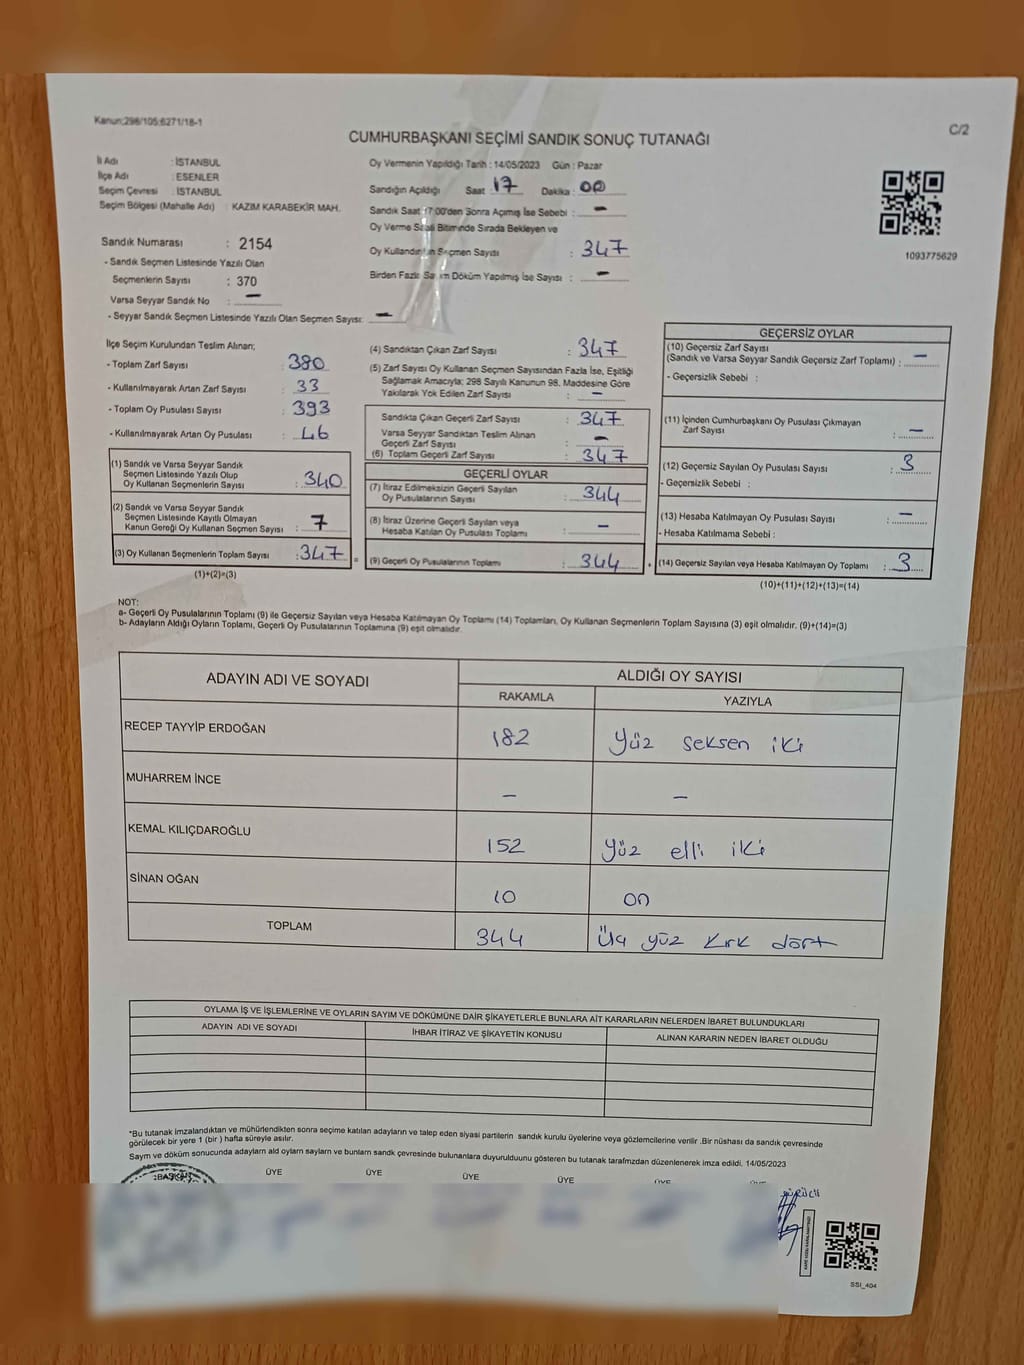 Kanun:298/105:6271/18-1
C/2
CUMHURBAŞKANI SEÇİMİ SANDIK SONUÇ TUTANAĞI
İl Adı : İSTANBUL
İlçe Adı : ESENLER
Seçim Çevresi : İSTANBUL
Seçim Bölgesi (Mahalle Adı) : KAZIM KARABEKİR MAH.
Sandık Numarası : 2154
- Sandık Seçmen Listesinde Yazılı Olan
Seçmenlerin Sayısı : 370
Varsa Seyyar Sandık No : –
- Seyyar Sandık Seçmen Listesinde Yazılı Olan Seçmen Sayısı: –
Oy Vermenin Yapıldığı Tarih : 14/05/2023 Gün : Pazar
Sandığın Açıldığı Saat : 17 Dakika : 00
Sandık Saat 17:00'den Sonra Açımış İse Sebebi : –
Oy Verme Saati Bitiminde Sırada Bekleyen ve
Oy Kullandırılan Seçmen Sayısı : 347
Birden Fazla Sayım Döküm Yapılmış İse Sayısı : –
1093775629
İlçe Seçim Kurulundan Teslim Alınan;
- Toplam Zarf Sayısı : 380
- Kullanılmayarak Artan Zarf Sayısı : 33
- Toplam Oy Pusulası Sayısı : 393
- Kullanılmayarak Artan Oy Pusulası : 46
(1) Sandık ve Varsa Seyyar Sandık
Seçmen Listesinde Yazılı Olup
Oy Kullanan Seçmenlerin Sayısı : 340
(2) Sandık ve Varsa Seyyar Sandık
Seçmen Listesinde Kayıtlı Olmayan
Kanun Gereği Oy Kullanan Seçmen Sayısı : 7
(3) Oy Kullanan Seçmenlerin Toplam Sayısı : 347
(1)+(2)=(3)
(4) Sandıktan Çıkan Zarf Sayısı : 347
(5) Zarf Sayısı Oy Kullanan Seçmen Sayısından Fazla İse, Eşitliği
Sağlamak Amacıyla; 298 Sayılı Kanunun 98. Maddesine Göre
Yakılarak Yok Edilen Zarf Sayısı : –
Sandıkta Çıkan Geçerli Zarf Sayısı : 347
Varsa Seyyar Sandıktan Teslim Alınan
Geçerli Zarf Sayısı : –
(6) Toplam Geçerli Zarf Sayısı : 347
GEÇERLİ OYLAR
(7) İtiraz Edilmeksizin Geçerli Sayılan
Oy Pusulalarının Sayısı : 344
(8) İtiraz Üzerine Geçerli Sayılan veya
Hesaba Katılan Oy Pusulası Toplamı : –
(9) Geçerli Oy Pusulalarının Toplamı : 344
GEÇERSİZ OYLAR
(10) Geçersiz Zarf Sayısı
(Sandık ve Varsa Seyyar Sandık Geçersiz Zarf Toplamı) : –
- Geçersizlik Sebebi :
(11) İçinden Cumhurbaşkanı Oy Pusulası Çıkmayan
Zarf Sayısı : –
(12) Geçersiz Sayılan Oy Pusulası Sayısı : 3
- Geçersizlik Sebebi :
(13) Hesaba Katılmayan Oy Pusulası Sayısı : –
- Hesaba Katılmama Sebebi :
(14) Geçersiz Sayılan veya Hesaba Katılmayan Oy Toplamı : 3
(10)+(11)+(12)+(13)=(14)
NOT:
a- Geçerli Oy Pusulalarının Toplamı (9) ile Geçersiz Sayılan veya Hesaba Katılmayan Oy Toplamı (14) Toplamları, Oy Kullanan Seçmenlerin Toplam Sayısına (3) eşit olmalıdır. (9)+(14)=(3)
b- Adayların Aldığı Oyların Toplamı, Geçerli Oy Pusulalarının Toplamına (9) eşit olmalıdır.
ADAYIN ADI VE SOYADI
ALDIĞI OY SAYISI
RAKAMLA YAZIYLA
RECEP TAYYİP ERDOĞAN 182 Yüz seksen iki
MUHARREM İNCE – –
KEMAL KILIÇDAROĞLU 152 Yüz elli iki
SİNAN OĞAN 10 on
TOPLAM 344 Üç yüz kırk dört
OYLAMA İŞ VE İŞLEMLERİNE VE OYLARIN SAYIM VE DÖKÜMÜNE DAİR ŞİKAYETLERLE BUNLARA AİT KARARLARIN NELERDEN İBARET BULUNDUKLARI
ADAYIN ADI VE SOYADI İHBAR İTİRAZ VE ŞİKAYETİN KONUSU ALINAN KARARIN NEDEN İBARET OLDUĞU
*Bu tutanak imzalandıktan ve mühürlendikten sonra seçime katılan adayların ve talep eden siyasi partilerin sandık kurulu üyelerine veya gözlemcilerine verilir .Bir nüshası da sandık çevresinde
görülecek bir yere 1 (bir ) hafta süreyle asılır.
Sayım ve döküm sonucunda adayların ald oyların sayların ve bunların sandk çevresinde bulunanlara duyurulduunu gösteren bu tutanak tarafmzdan düzenlenerek imza edildi. 14/05/2023
BAŞKAN ÜYE ÜYE ÜYE ÜYE ÜYE ÜYE
SSI_404